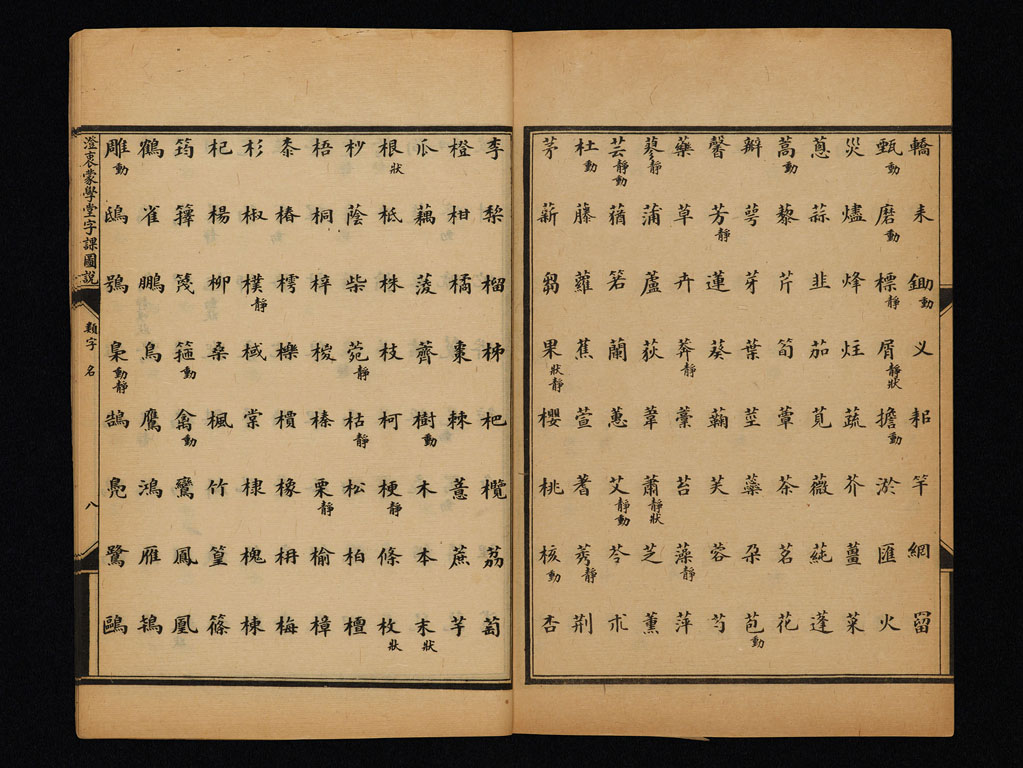 轎耒鋤動乂耜竿網罶
甄動磨動標靜屑靜狀擔動淤匯火
災燼烽炷蔬芥薑菜
蔥蒜韭茄莧薇蒓蓬
蒿動藜芹筍蕈茶茗花
辦萼芽葉莖蘂朶苞動
馨芳靜蓮葵蘜芙蓉芍
藥草卉莽靜藁苔藻靜萍
蓼靜蒲蘆荻葦蕭靜狀芝薰
芸靜動蕕箬蘭蕙艾靜動芩朮
杜動藤蘿蕉萱蓍莠靜荆
茅薪芻果狀靜櫻桃核動杏
李梨榴柿杷欖荔萄
橙柑橘棗棘薏蔗芋
瓜藕菱薺樹動木本末狀
根狀柢株枝柯梗靜條枚狀
杪蔭柴菀靜枯靜松柏檀
梧桐梓椶榛栗靜榆樟
桼椿樗櫟櫝橡枏梅
杉椒樸靜棫棠棣槐棟
杞楊柳桑楓竹篁篠
筠籜篾箍動禽動鸞鳳凰
鶴雀鵬鳥鷹鴻雁鴇
雕動鴟鴞梟動靜鵠鳧鷺鷗
澄衷蒙學堂字課圖說
類字 名
八